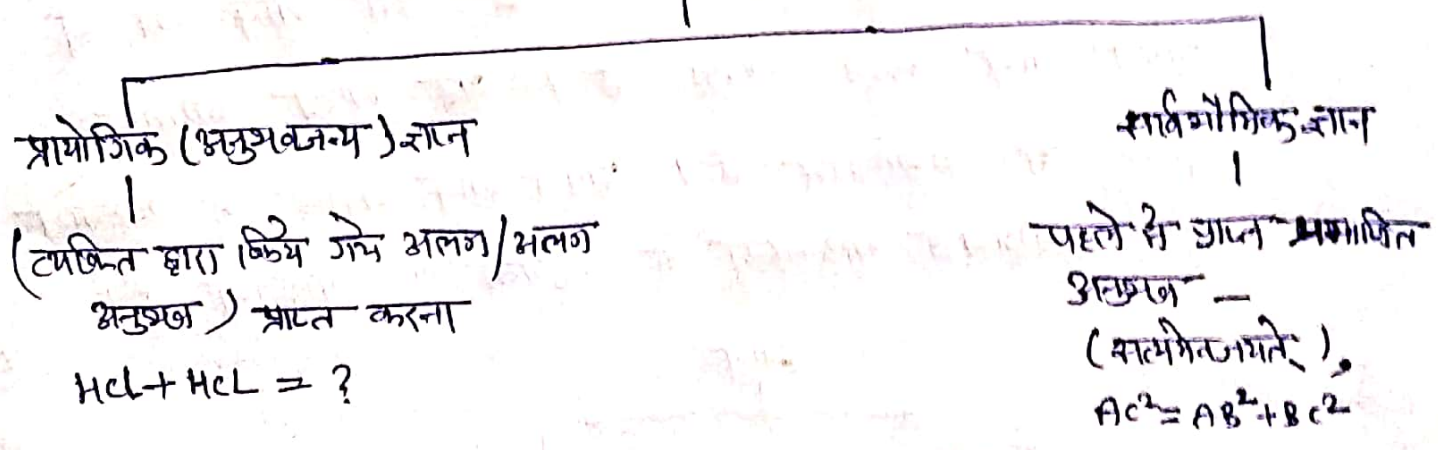 प्रायोगिक (अनुभवजन्य) ज्ञान
(व्यक्ति द्वारा किये गये अलग/अलग
अनुभव) प्राप्त करना
HCl + HCL = ?
सार्वभौमिक ज्ञान
पहले से प्राप्त प्रमाणित
अनुभव —
(सत्यमेव जयते).
AC² = AB² + BC²